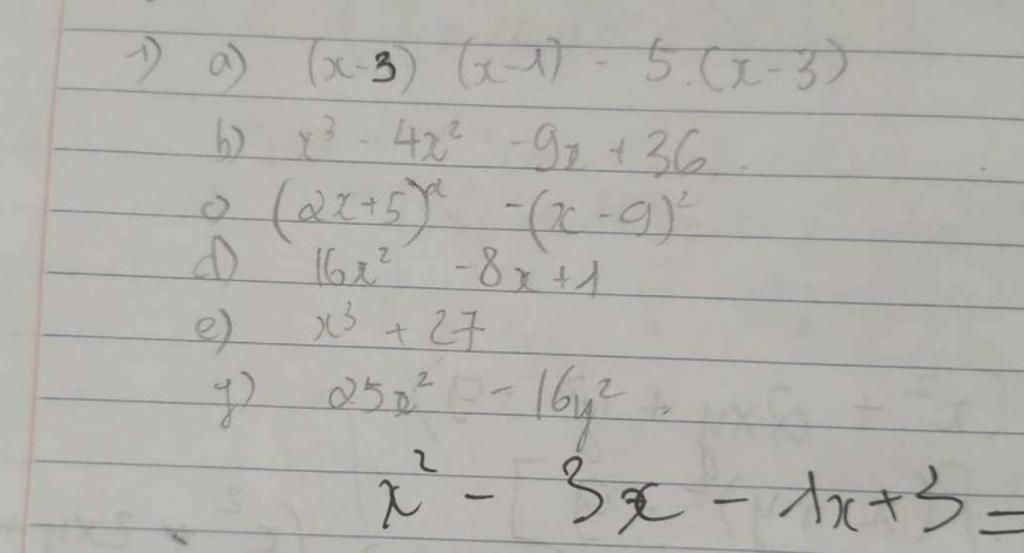 1) a) (x-3) (x-1) - 5.(x-3)
b) x³ - 4x² - 9x + 36
c) (2x+5)² - (x-9)²
d) 16x² - 8x + 1
e) x³ + 27
g) 25x² - 16y²
x² - 3x - 1x + 3 =